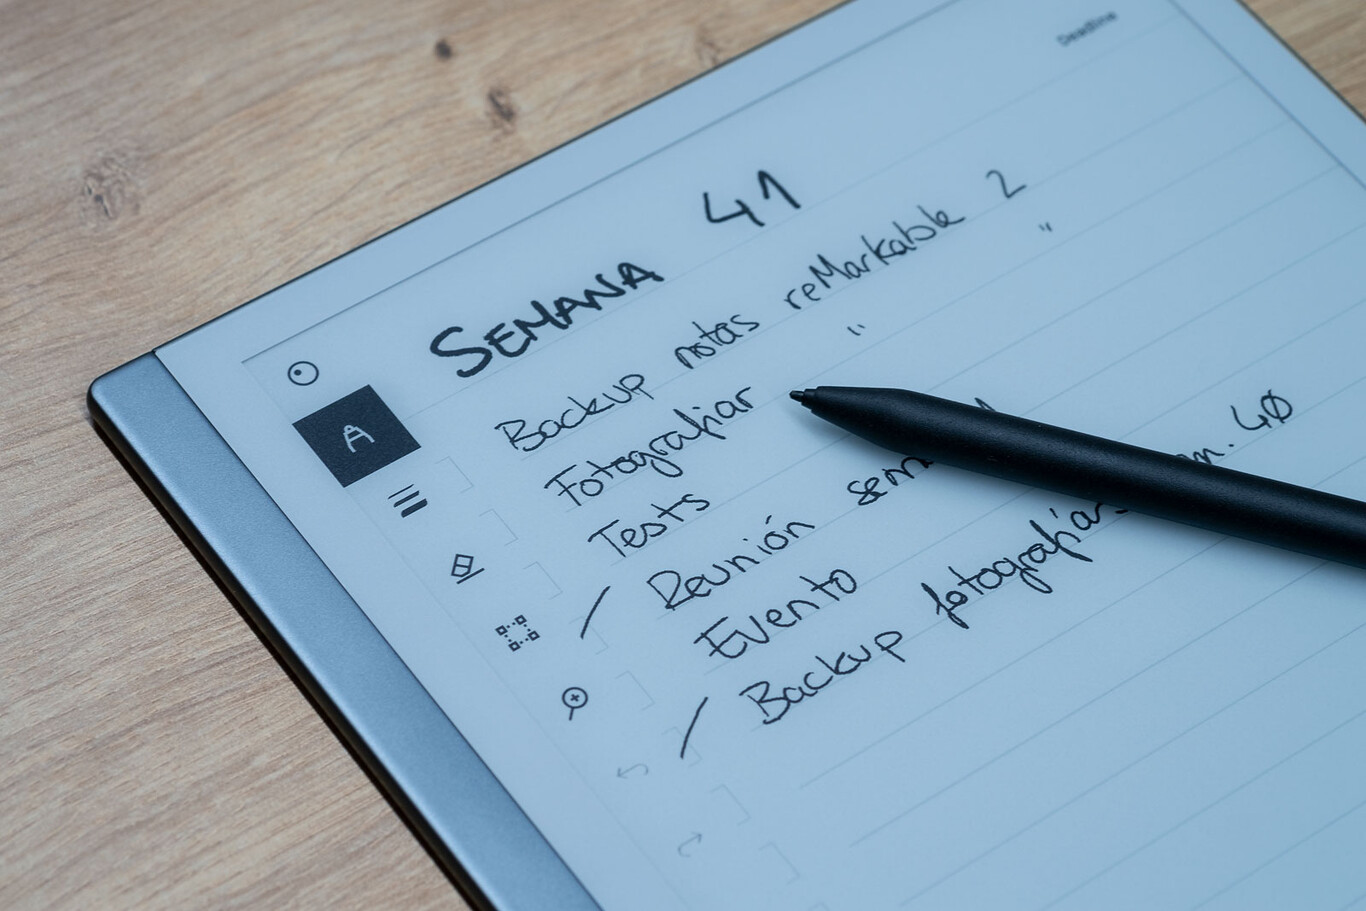 Deadline
SEMANA 41
Backup notas reMarkable 2
Fotografiar " "
Tests
Reunión
Evento
Backup fotografías 40